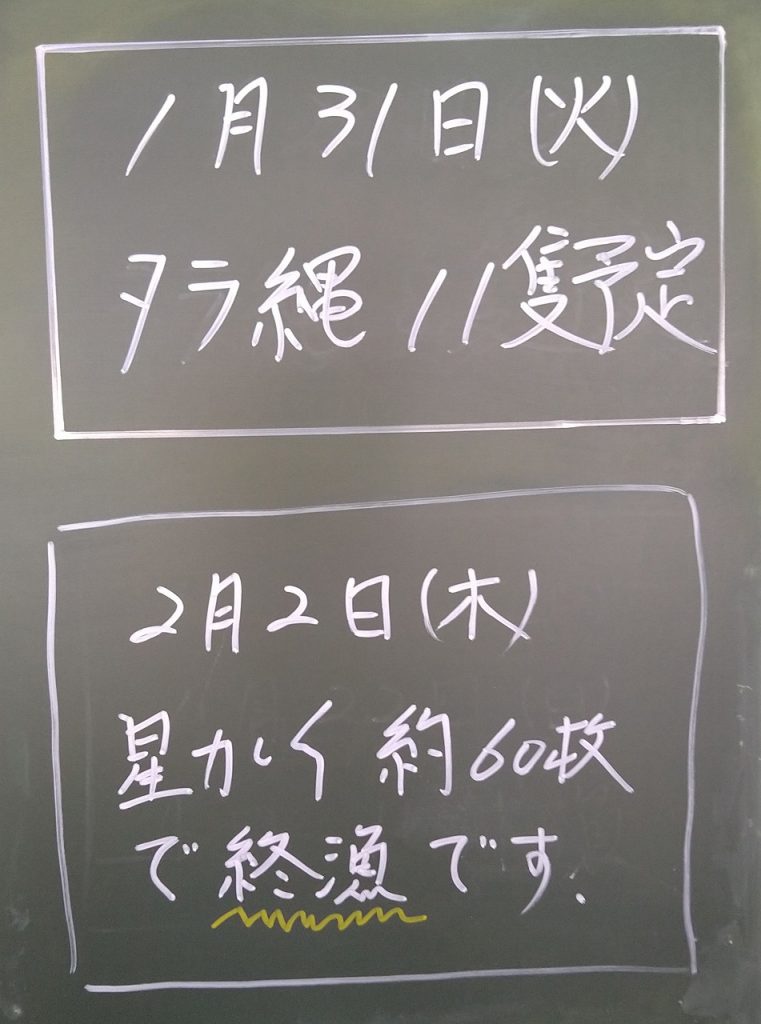 1月31日(火)
タラ縄 11隻予定
2月2日(木)
星かく 約60枚
で終漁です.